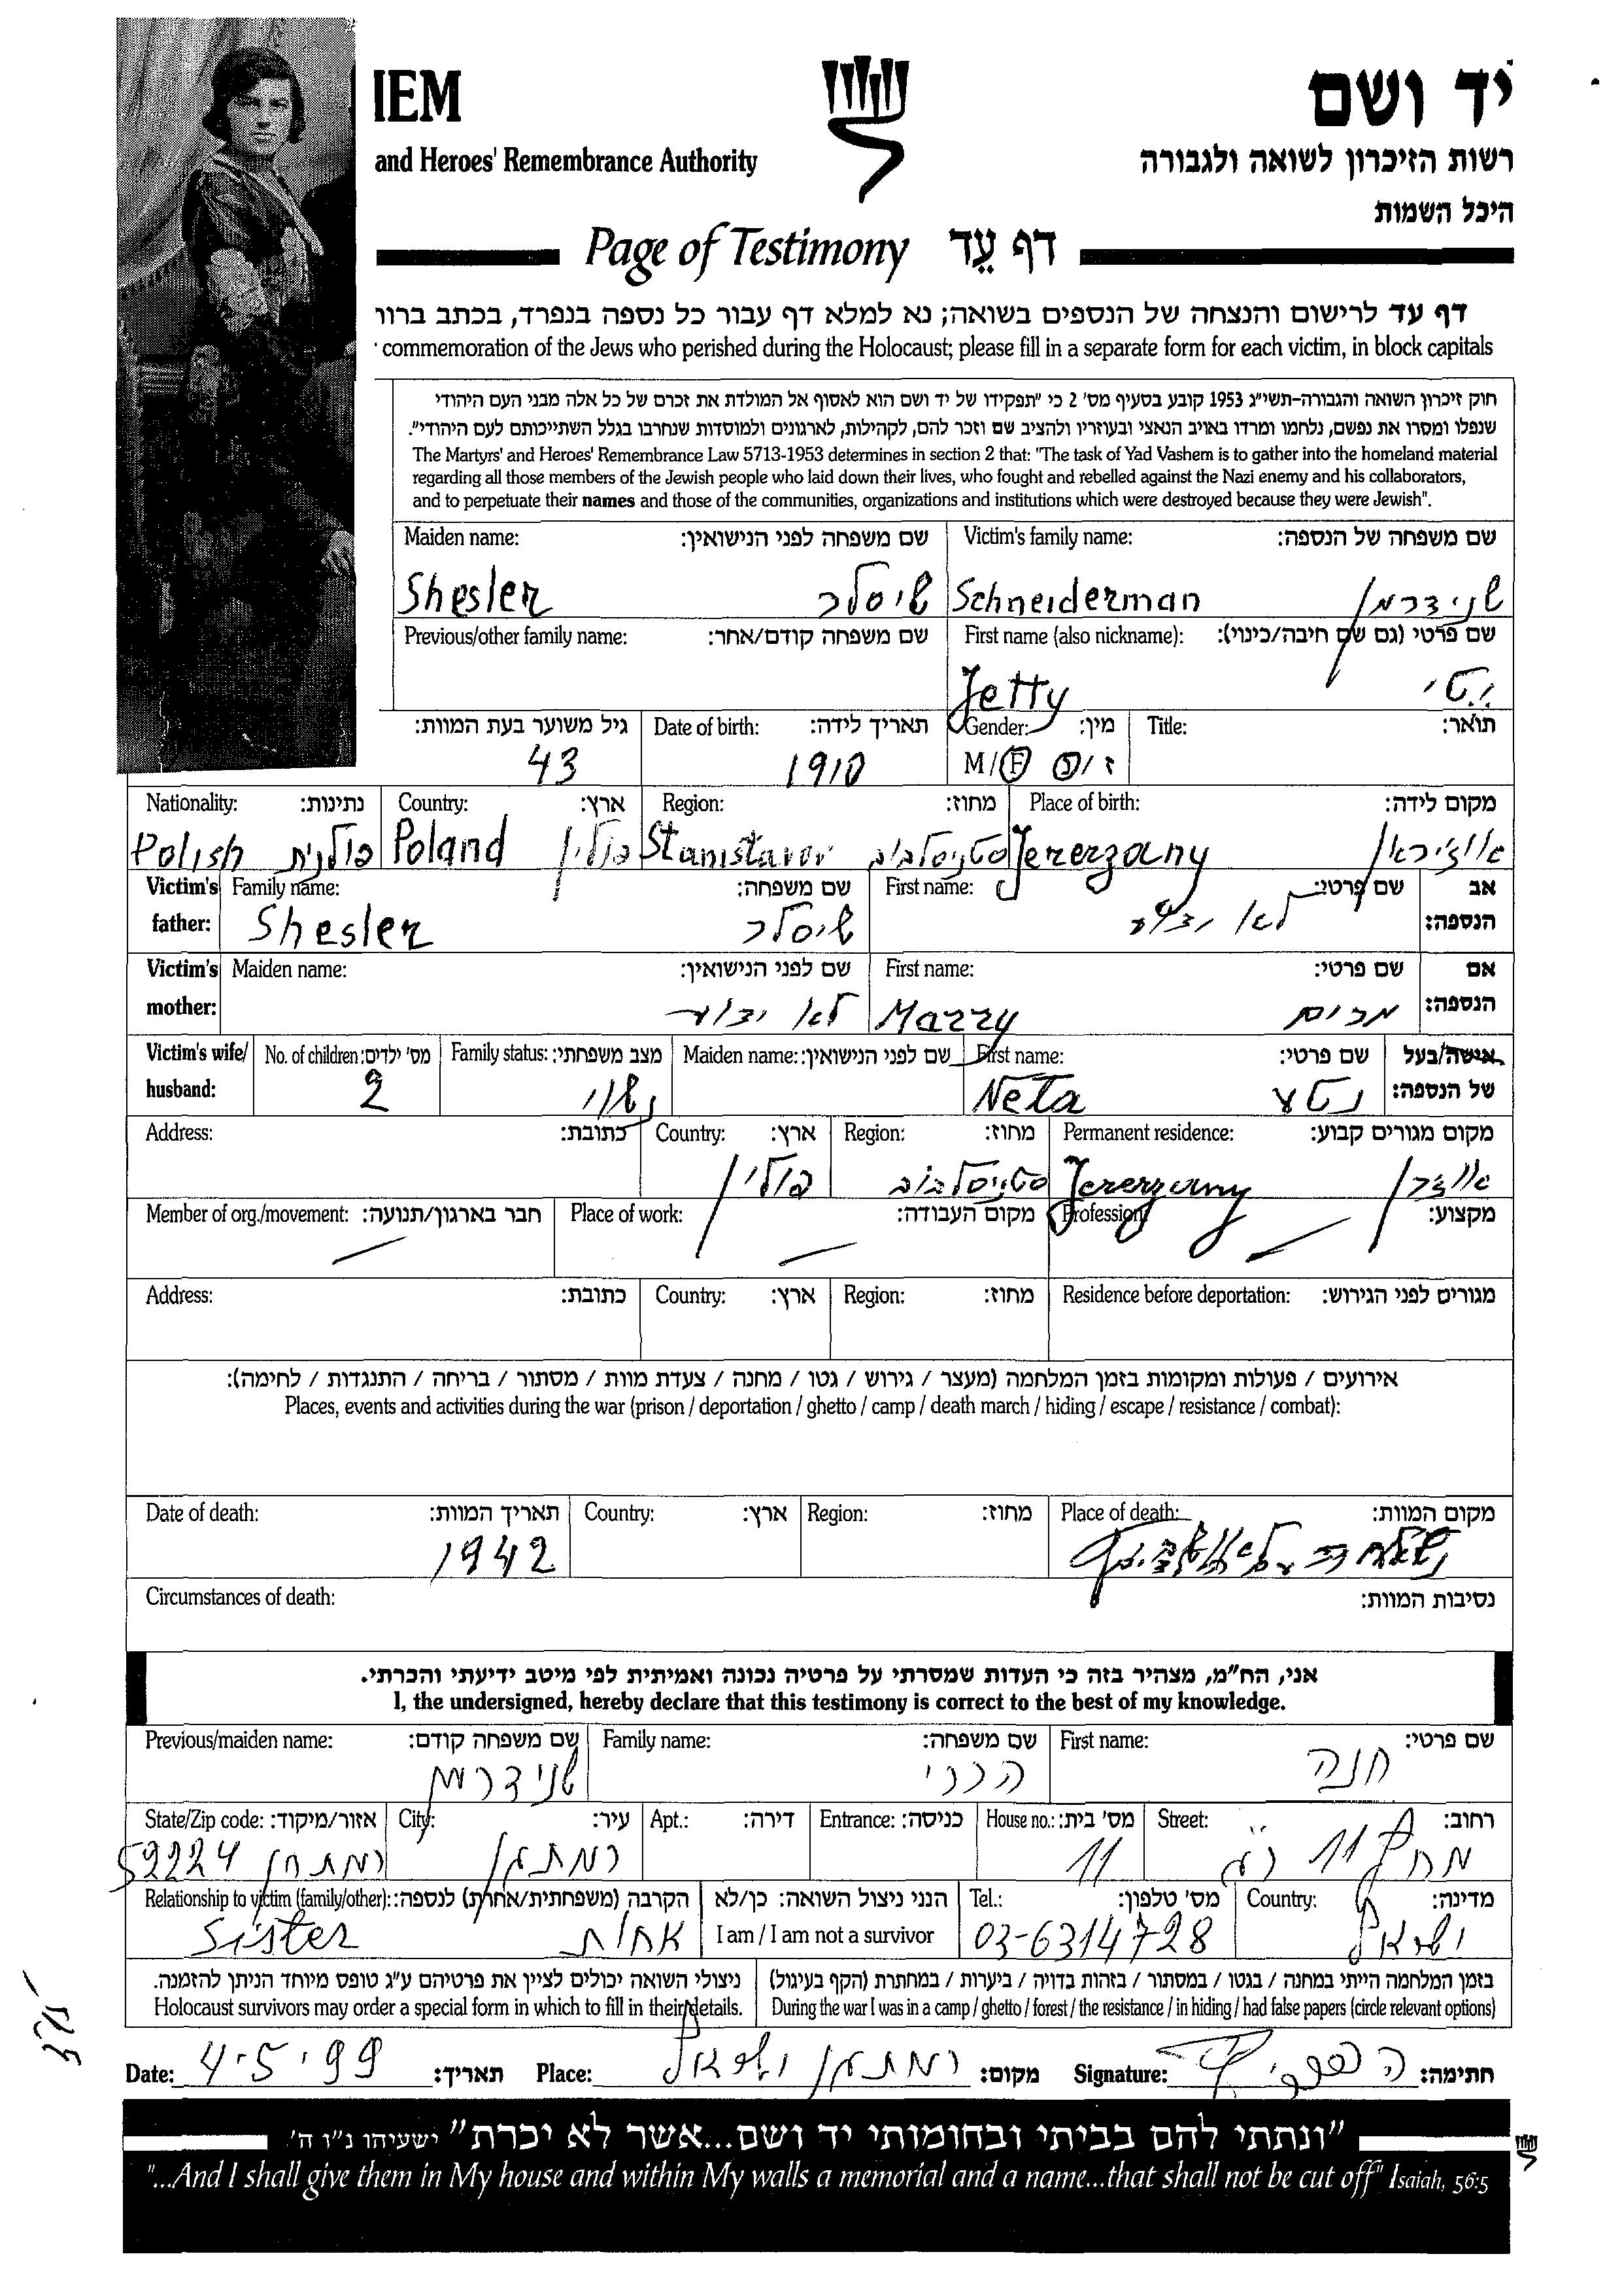 IEM
יד ושם
and Heroes' Remembrance Authority
רשות הזיכרון לשואה ולגבורה
היכל השמות
Page of Testimony דף עֵד
דף עד לרישום והנצחה של הנספים בשואה; נא למלא דף עבור כל נספה בנפרד, בכתב ברור
commemoration of the Jews who perished during the Holocaust; please fill in a separate form for each victim, in block capitals
חוק זיכרון השואה והגבורה-תשי"ג 1953 קובע בסעיף מס' 2 כי "תפקידו של יד ושם הוא לאסוף אל המולדת את זכרם של כל אלה מבני העם היהודי
שנפלו ומסרו את נפשם, נלחמו ומרדו באויב הנאצי ובעוזריו ולהציב שם וזכר להם, לקהילות, לארגונים ולמוסדות שנחרבו בגלל השתייכותם לעם היהודי".
The Martyrs' and Heroes' Remembrance Law 5713-1953 determines in section 2 that: "The task of Yad Vashem is to gather into the homeland material
regarding all those members of the Jewish people who laid down their lives, who fought and rebelled against the Nazi enemy and his collaborators,
and to perpetuate their names and those of the communities, organizations and institutions which were destroyed because they were Jewish".
Maiden name: שם משפחה לפני הנישואין: Victim's family name: שם משפחה של הנספה:
Shesler שיסלר Schneiderman שנידרמן
Previous/other family name: שם משפחה קודם/אחר: First name (also nickname): שם פרטי (גם שם חיבה/כינוי):
Jetty יטי
גיל משוער בעת המוות: Date of birth: תאריך לידה: Gender: מין: Title: תואר:
43 1910 M/F ז/נ
Nationality: נתינות: Country: ארץ: Region: מחוז: Place of birth: מקום לידה:
Polish פולנית Poland פולין Stanislavov סטניסלבוב Jezerzany
Victim's Family name: שם משפחה: First name: שם פרטי: אב
father: Shesler שיסלר לא ידוע הנספה:
Victim's Maiden name: שם לפני הנישואין: First name: שם פרטי: אם
mother: לא ידוע Marry מרים הנספה:
Victim's wife/ No. of children: מס' ילדים: Family status: מצב משפחתי: Maiden name: שם לפני הנישואין: First name: שם פרטי: אישה/בעל
husband: 2 נשוי Neta נטע של הנספה:
Address: כתובת: Country: ארץ: Region: מחוז: Permanent residence: מקום מגורים קבוע:
פולין סטניסלבוב Jezerzany
Member of org./movement: חבר בארגון/תנועה: Place of work: מקום העבודה: Profession: מקצוע:
Address: כתובת: Country: ארץ: Region: מחוז: Residence before deportation: מגורים לפני הגירוש:
אירועים / פעולות ומקומות בזמן המלחמה (מעצר / גירוש / גטו / מחנה / צעדת מוות / מסתור / בריחה / התנגדות / לחימה):
Places, events and activities during the war (prison / deportation / ghetto / camp / death march / hiding / escape / resistance / combat):
Date of death: תאריך המוות: Country: ארץ: Region: מחוז: Place of death: מקום המוות:
1942
Circumstances of death: נסיבות המוות:
אני, הח"מ, מצהיר בזה כי העדות שמסרתי על פרטיה נכונה ואמיתית לפי מיטב ידיעתי והכרתי.
I, the undersigned, hereby declare that this testimony is correct to the best of my knowledge.
Previous/maiden name: שם משפחה קודם: Family name: שם משפחה: First name: שם פרטי:
שנידרמן הררי חנה
State/Zip code: אזור/מיקוד: City: עיר: Apt.: דירה: Entrance: כניסה: House no.: מס' בית: Street: רחוב:
52224 רמת גן רמת גן 11 11
Relationship to victim (family/other): הקרבה (משפחתית/אחרת) לנספה: הנני ניצול השואה: כן/לא Tel.: מס' טלפון: Country: מדינה:
Sister אחות I am / I am not a survivor 03-6314728 ישראל
ניצולי השואה יכולים לציין את פרטיהם ע"ג טופס מיוחד הניתן להזמנה. בזמן המלחמה הייתי במחנה / בגטו / במסתור / בזהות בדויה / ביערות / במחתרת (הקף בעיגול)
Holocaust survivors may order a special form in which to fill in their details. During the war I was in a camp / ghetto / forest / the resistance / in hiding / had false papers (circle relevant options)
Date: 4.5.99 תאריך: Place: רמת גן ישראל מקום: Signature: חתימה:
"ונתתי להם בביתי ובחומותי יד ושם...אשר לא יכרת" ישעיהו נ"ו ה'.
"...And I shall give them in My house and within My walls a memorial and a name...that shall not be cut off" Isaiah, 56:5